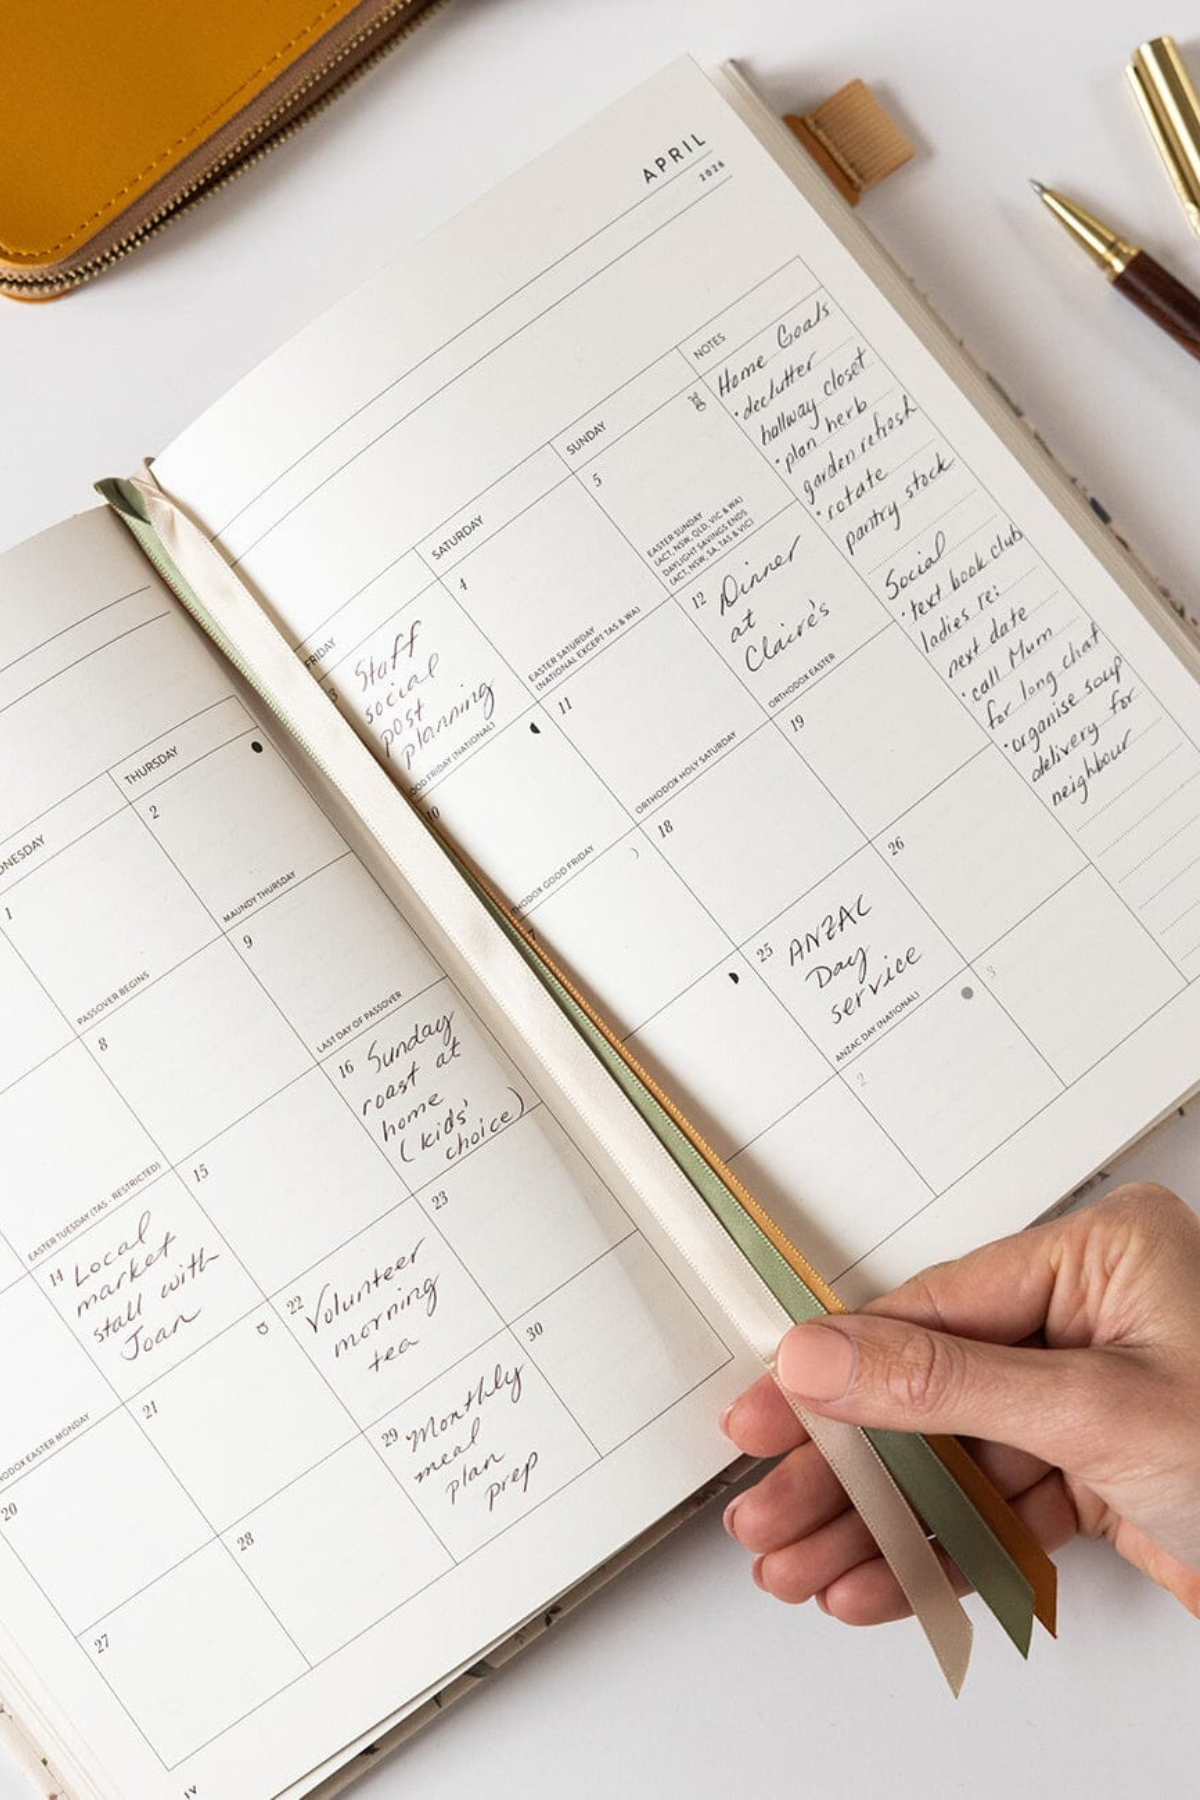 DNESDAY
THURSDAY
1
PASSOVER BEGINS
2
MAUNDY THURSDAY
EASTER TUESDAY (TAS - RESTRICTED)
8
9
LAST DAY OF PASSOVER
ODOX EASTER MONDAY
14 Local
market
stall with
Joan
15
16 Sunday
roast at
home
(kids'
choice)
20
21
22 Volunteer
morning
tea
23
27
28
29 Monthly
meal
plan
prep
30
APRIL
2026
FRIDAY
SATURDAY
SUNDAY
NOTES
3 Staff
social
post
planning
OOD FRIDAY (NATIONAL)
4
EASTER SATURDAY
(NATIONAL EXCEPT TAS & WA)
5
EASTER SUNDAY
(ACT, NSW, QLD, VIC & WA)
DAYLIGHT SAVINGS ENDS
(ACT, NSW, SA, TAS & VIC)
10
HODOX GOOD FRIDAY
11
ORTHODOX HOLY SATURDAY
12 Dinner
at
Claire's
ORTHODOX EASTER
7
18
19
25 ANZAC
Day
service
ANZAC DAY (NATIONAL)
26
2
3
Home Goals
• declutter
hallway closet
• plan herb
garden refresh
• rotate
pantry stock
Social
• text book club
ladies re:
next date
• call Mum
for long chat
• organise soup
delivery for
neighbour